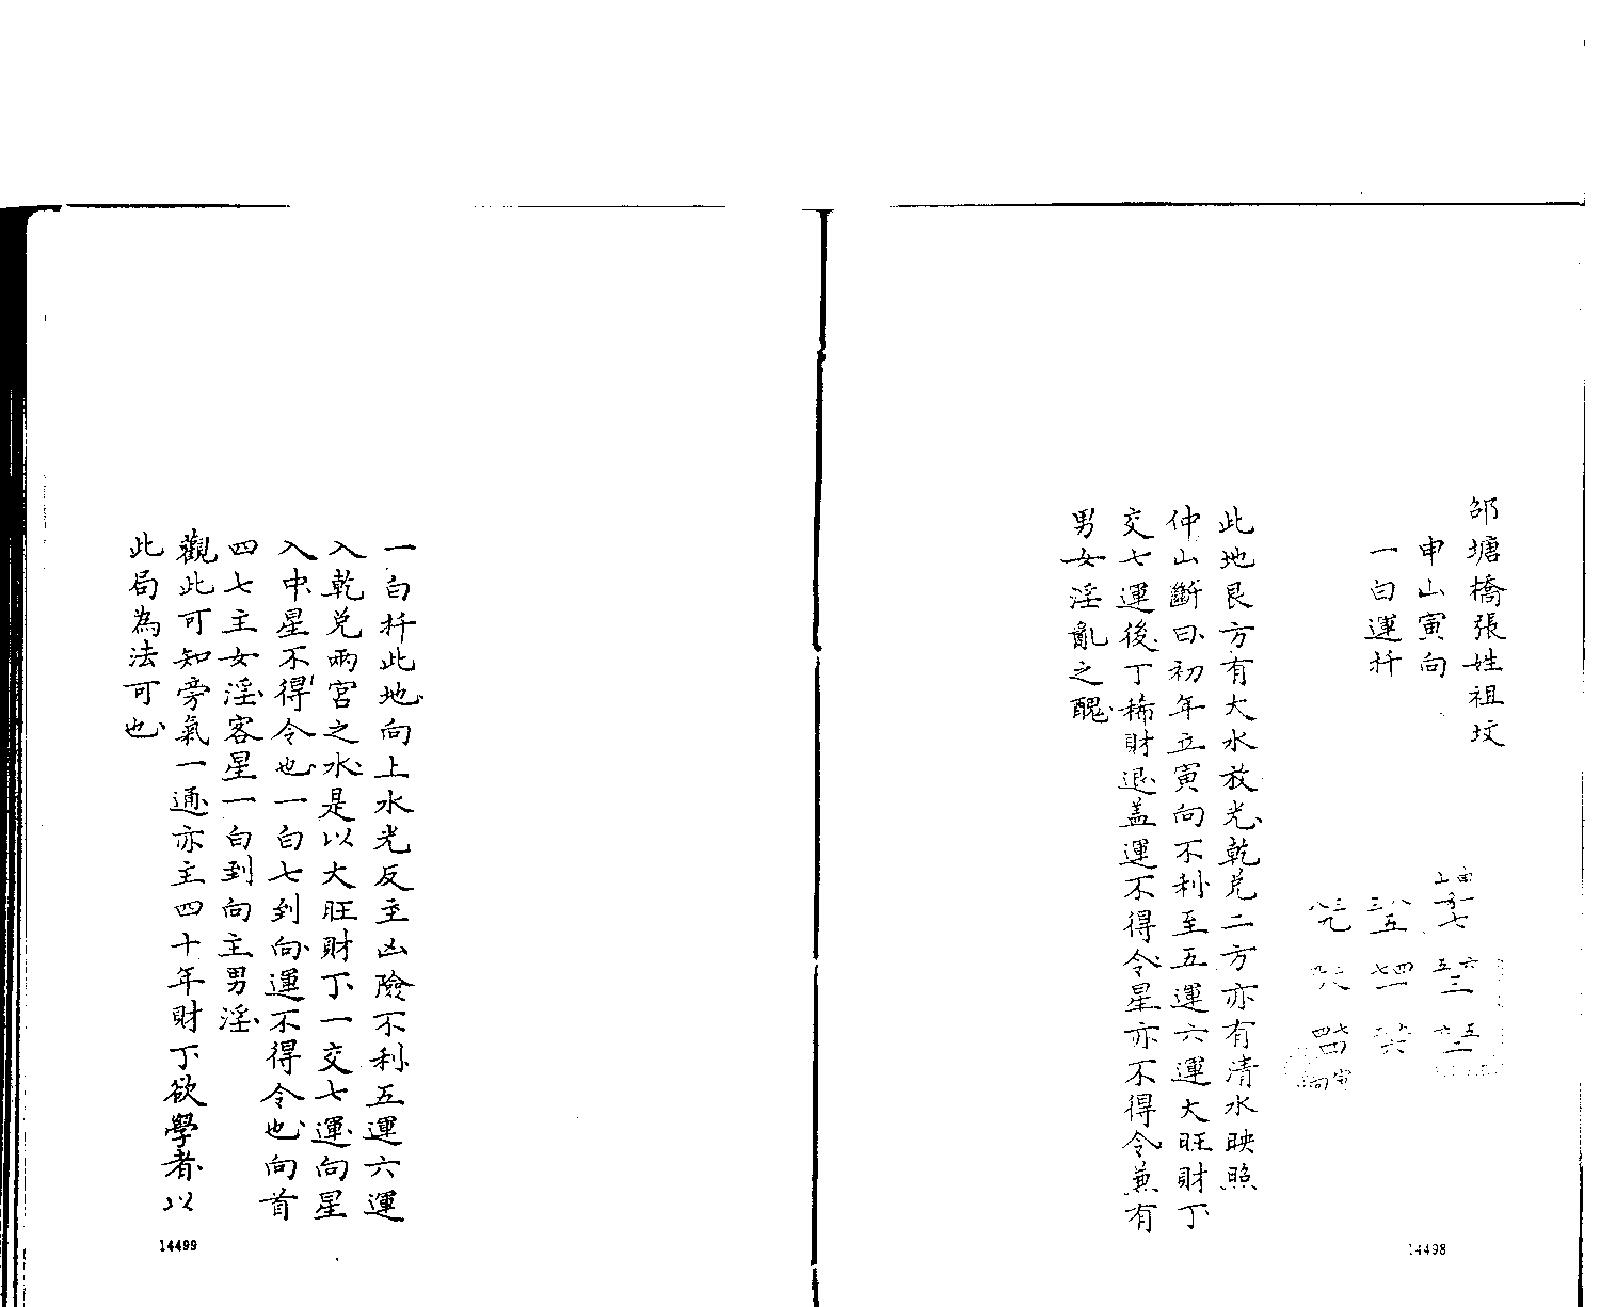 邵塘橋張姓祖坟
申山寅向
一白運扦
此地艮方有大水放光乾兌二方亦有清水映照
仲山斷曰初年立寅向不利至五運六運大旺財丁
交七運後丁稀財退盖運不得令星亦不得令兼有
男女淫亂之醜
14498
一白扦此地向上水光反主凶險不利五運六運
入乾兌兩宮之水是以大旺財丁一交七運向星
入中星不得令也一白七到向運不得令也向首
四七主女淫客星一白到向主男淫
觀此可知旁氣一通亦主四十年財丁欲學者以
此局為法可也
14499